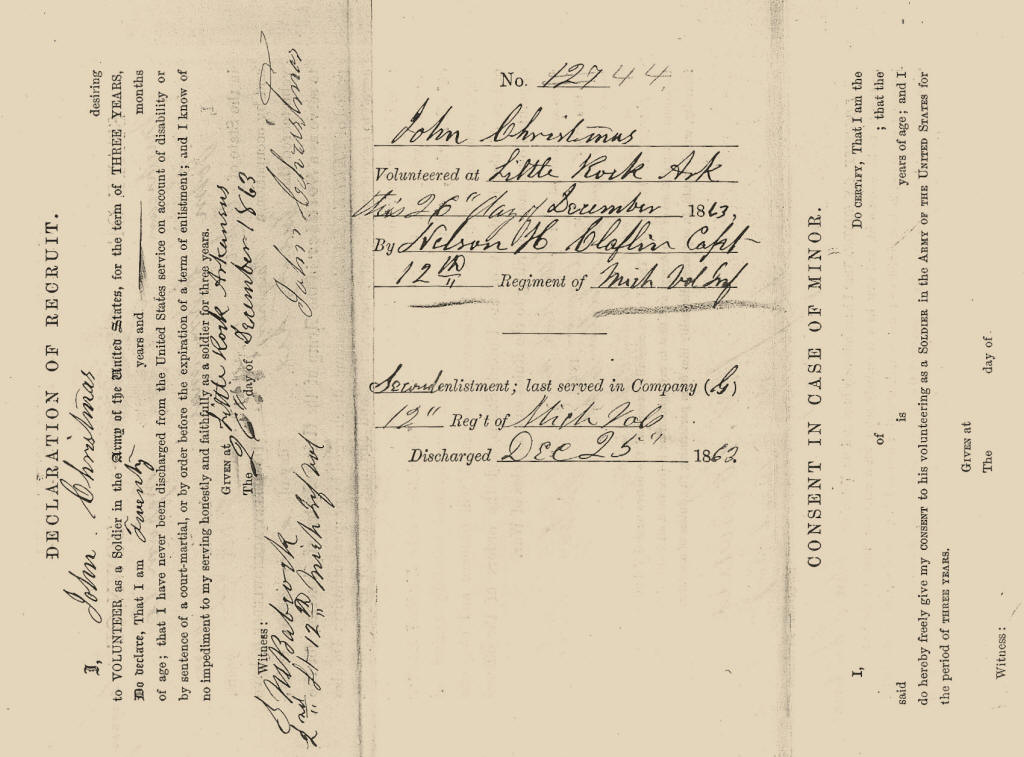 DECLARATION OF RECRUIT.
I, John Christmas desiring
to VOLUNTEER as a Soldier in the Army of the United States, for the term of THREE YEARS,
Do declare, That I am Twenty years and months
of age; that I have never been discharged from the United States service on account of disability or
by sentence of a court-martial, or by order before the expiration of a term of enlistment; and I know of
no impediment to my serving honestly and faithfully as a soldier for three years.
GIVEN at Little Rock Arkansas
The 26th day of December 1863
John Christmas
Witness:
Babcock
2nd Lt 12th Mich Inf Vol
No. 12744.
John Christmas
Volunteered at Little Rock Ark
this 26" day of December 1863,
By Nelson H Claflin Capt
12th Regiment of Mich Vol Inf
Second enlistment; last served in Company (G)
12" Reg't of Mich Vols
Discharged Dec 25" 1863.
CONSENT IN CASE OF MINOR.
I, Do CERTIFY, That I am the
of ; that the
said is years of age; and I
do hereby freely give my CONSENT to his volunteering as a SOLDIER in the ARMY OF THE UNITED STATES for
the period of THREE YEARS.
GIVEN at
The day of
Witness: